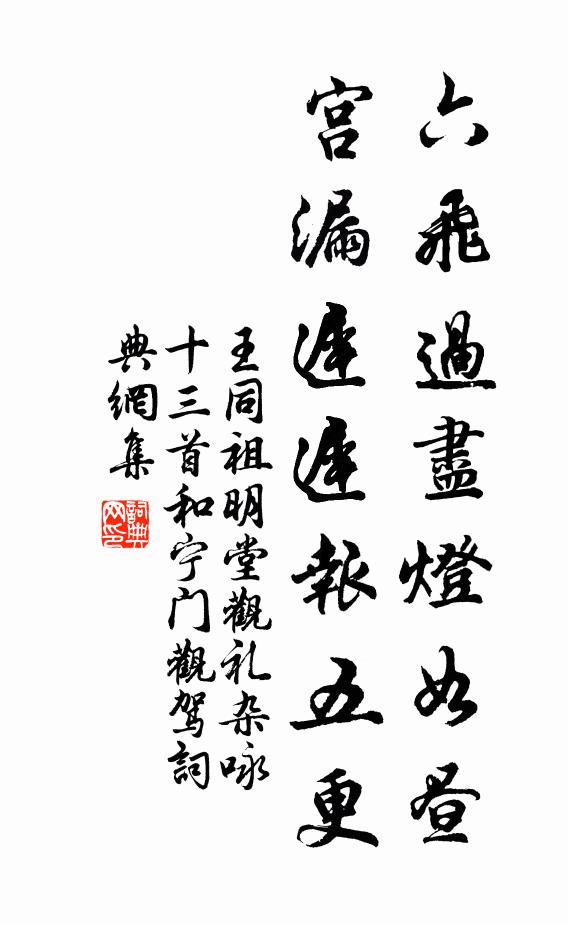 六飛過盡燈如晝
宮漏遲遲報五更
王同祖明堂觀礼杂咏
十三首和宁门觀駕詞
典網集
詞典网印